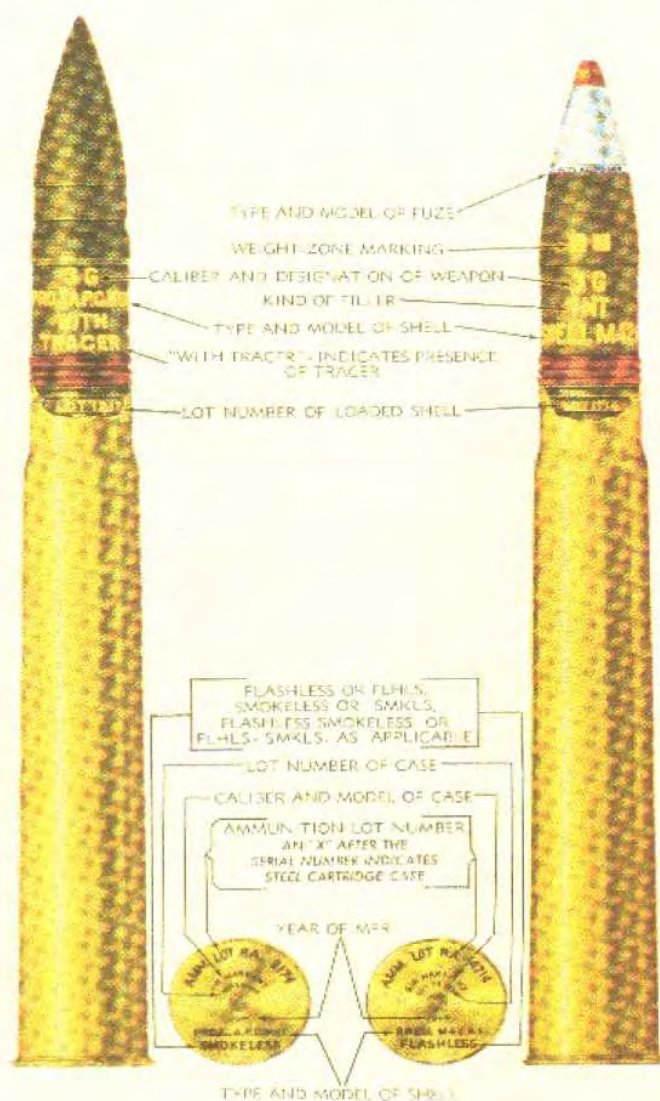 TYPE AND MODEL OF FUZE
WEIGHT-ZONE MARKING
CALIBER AND DESIGNATION OF WEAPON
KIND OF FILLER
TYPE AND MODEL OF SHELL
"WITH TRACER"- INDICATES PRESENCE
OF TRACER
LOT NUMBER OF LOADED SHELL
G
WITH
TRACER
G
TNT
FLASHLESS OR FLHLS,
SMOKELESS OR SMKLS,
FLASHLESS SMOKELESS OR
FLHLS- SMKLS, AS APPLICABLE
LOT NUMBER OF CASE
CALIBER AND MODEL OF CASE
AMMUNITION LOT NUMBER
AN "X" AFTER THE
SERIAL NUMBER INDICATES
STEEL CARTRIDGE CASE
YEAR OF MFR
AMM. LOT
SMOKELESS
AMM. LOT
FLASHLESS
TYPE AND MODEL OF SHELL